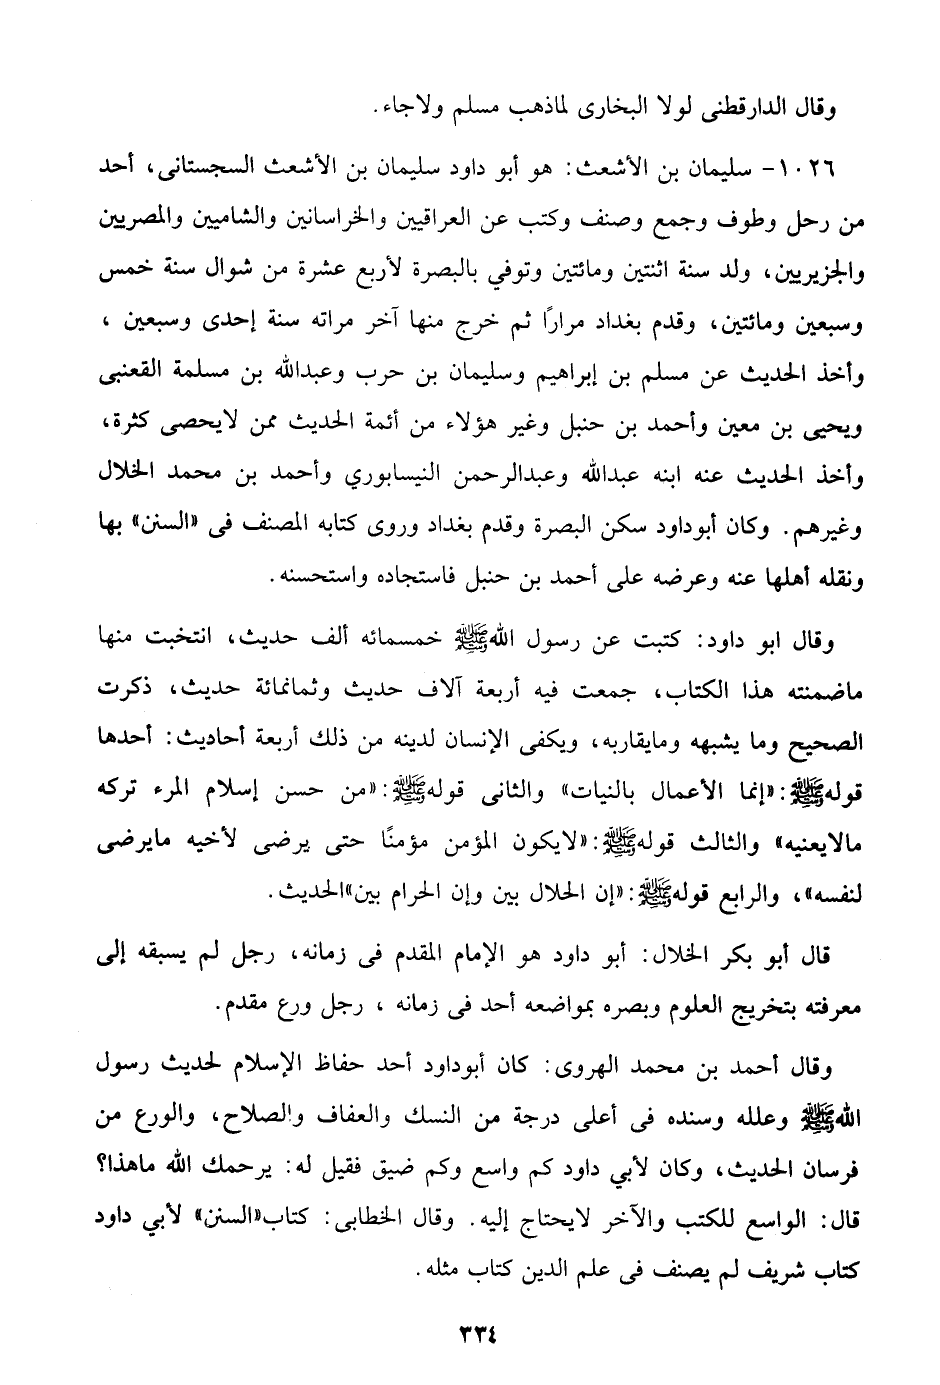 وقال الدارقطنى لولا البخارى لماذهب مسلم ولاجاء.
١٠٢٦- سليمان بن الأشعث: هو أبو داود سليمان بن الأشعث السجستانى، أحد
من رحل وطوف وجمع وصنف وكتب عن العراقيين والخراسانين والشاميين والمصريين
والجزيريين، ولد سنة اثنتين ومائتين وتوفي بالبصرة لأربع عشرة من شوال سنة خمس
وسبعين ومائتين، وقدم بغداد مرارًا ثم خرج منها آخر مراته سنة إحدى وسبعين ،
وأخذ الحديث عن مسلم بن إبراهيم وسليمان بن حرب وعبدالله بن مسلمة القعنبى
ويحيى بن معين وأحمد بن حنبل وغير هؤلاء من أئمة الحديث ممن لايحصى كثرة،
وأخذ الحديث عنه ابنه عبدالله وعبدالرحمن النيسابوري وأحمد بن محمد الخلال
وغيرهم. وكان أبوداود سكن البصرة وقدم بغداد وروى كتابه المصنف فى «السنن» بها
ونقله أهلها عنه وعرضه على أحمد بن حنبل فاستجاده واستحسنه.
وقال ابو داود: كتبت عن رسول اللهﷺ خمسمائه ألف حديث، انتخبت منها
ماضمنته هذا الكتاب، جمعت فيه أربعة آلاف حديث وثمانمائة حديث، ذكرت
الصحيح وما يشبهه ومايقاربه، ويكفى الإنسان لدينه من ذلك أربعة أحاديث: أحدها
قولهﷺ:«إنما الأعمال بالنيات» والثانى قولهﷺ:«من حسن إسلام المرء تركه
مالايعنيه» والثالث قولهﷺ:«لايكون المؤمن مؤمنًا حتى يرضى لأخيه مايرضى
لنفسه»، والرابع قولهﷺ:«إن الحلال بين وإن الحرام بين»الحديث.
قال أبو بكر الخلال: أبو داود هو الإمام المقدم فى زمانه، رجل لم يسبقه إلى
معرفته بتخريج العلوم وبصره بمواضعه أحد فى زمانه ، رجل ورع مقدم.
وقال أحمد بن محمد الهروى: كان أبوداود أحد حفاظ الإسلام لحديث رسول
اللهﷺ وعلله وسنده فى أعلى درجة من النسك والعفاف والصلاح، والورع من
فرسان الحديث، وكان لأبي داود كم واسع وكم ضيق فقيل له: يرحمك الله ماهذا؟
قال: الواسع للكتب والآخر لايحتاج إليه. وقال الخطابى: كتاب«السنن» لأبي داود
كتاب شريف لم يصنف فى علم الدين كتاب مثله.
٣٣٤